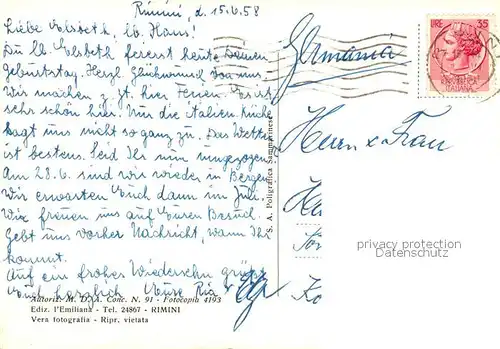 Rimini, d. 15.6.58
Liebe Elsbeth, lb. Hans!
Du lb. Elsbeth feierst heute Deinen
Geburtstag. Herzl. Glückwunsch von uns.
Wir machen z. Zt. hier Ferien. Es ist
sehr schön hier. Nur die italien. Küche
sagt uns nicht so ganz zu. Das Wetter
ist bestens. Seid Ihr nun umgezogen?
Am 28.6. sind wir wieder in Bergen
Wir erwarten Euch dann im Juli.
Wir freuen uns auf Euren Besuch.
Gebt uns vorher Nachricht, wann Ihr
kommt.
Auf ein frohes Wiedersehn grüßt
Euch herzlich Eure Ria
Autoriz. M. D. A. Conc. N. 91 - Fotocopia 4193
Ediz. l'Emiliana - Tel. 24867 - RIMINI
Vera fotografia - Ripr. vietata
S. A. Poligrafica Sammarinese
LIRE 35
REPUBBLICA
ITALIANA
Germania
Herrn u. Frau
privacy protection
Datenschutz